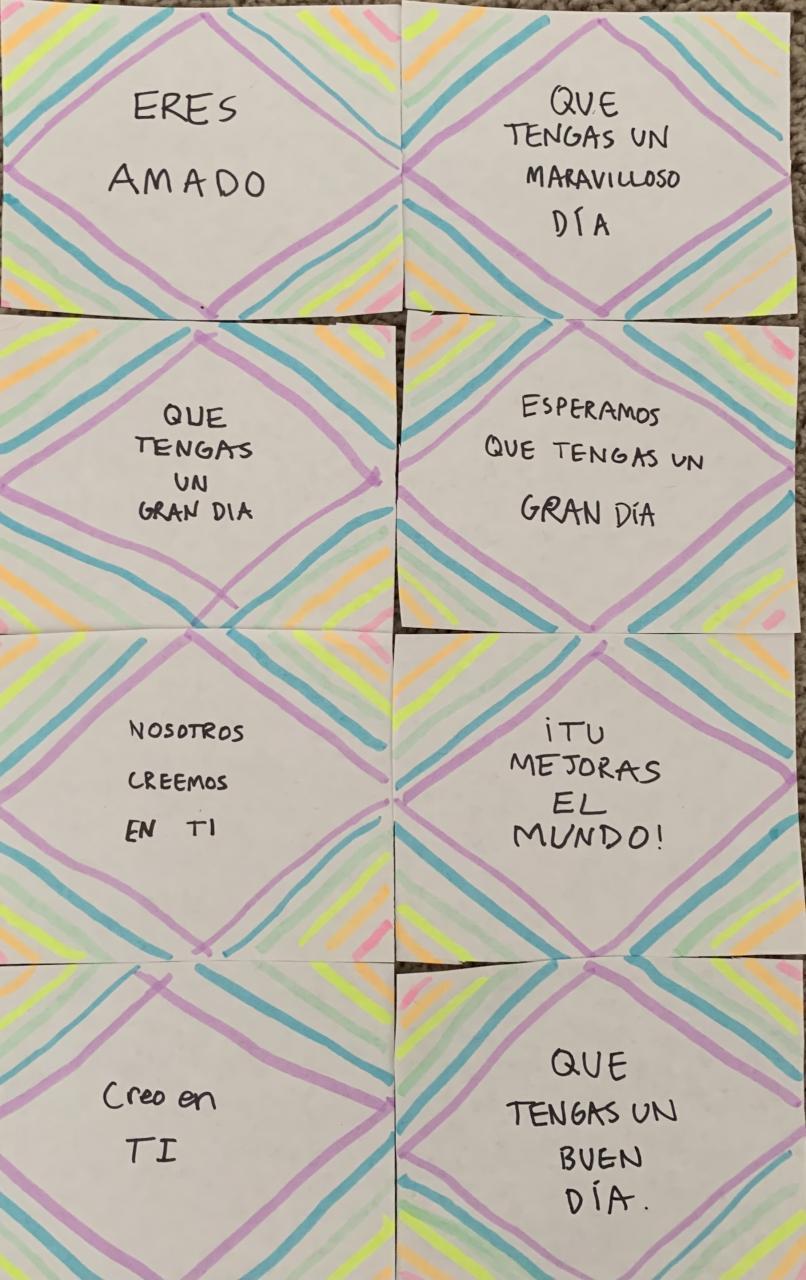 ERES
AMADO
QUE
TENGAS UN
MARAVILLOSO
DÍA
QUE
TENGAS
UN
GRAN DIA
ESPERAMOS
QUE TENGAS UN
GRAN DÍA
NOSOTROS
CREEMOS
EN TI
¡TU
MEJORAS
EL
MUNDO!
Creo en
TI
QUE
TENGAS UN
BUEN
DÍA.